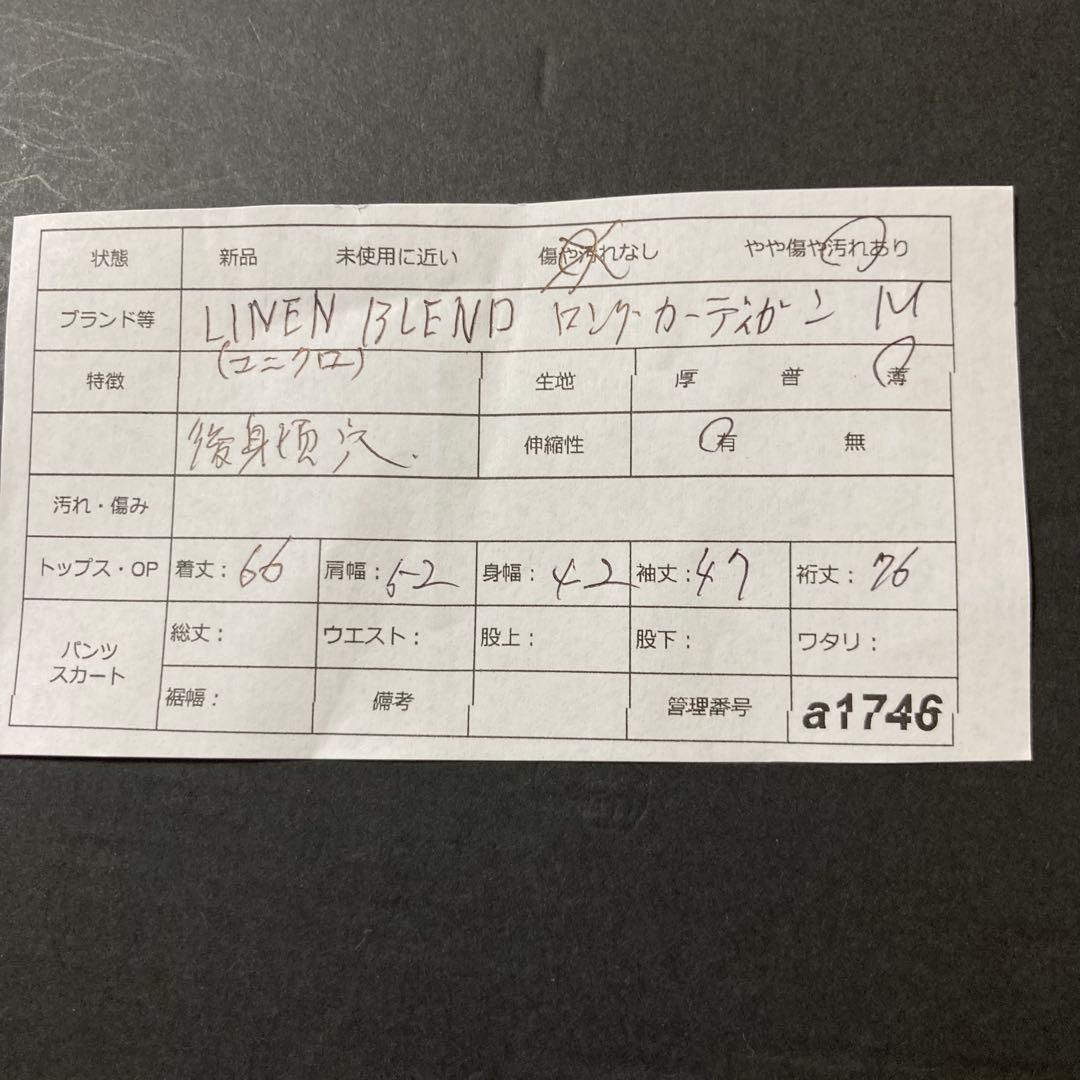 状態 新品 未使用に近い 傷や汚れなし やや傷や汚れあり
ブランド等 LINEN BLEND ロングカーディガン M
(ユニクロ)
特徴 生地 厚 普 薄
後身頃穴. 伸縮性 有 無
汚れ・傷み
トップス・OP 着丈：66 肩幅：52 身幅：42 袖丈：47 裄丈：76
パンツ
スカート
総丈： ウエスト： 股上： 股下： ワタリ：
裾幅： 備考 管理番号 a1746